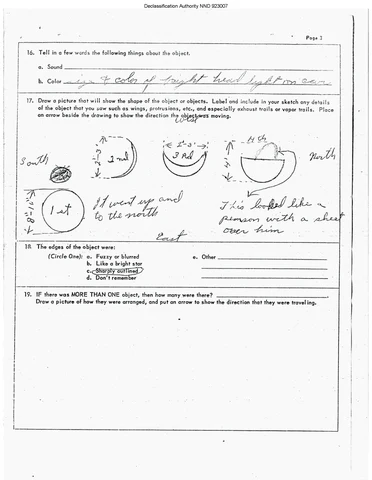 Declassification Authority NND 923007
Page 2
16. Tell in a few words the following things about the object.
a. Sound
b. Color size & color of bright head light on car
17. Draw a picture that will show the shape of the object or objects. Label and include in your sketch any details
of the object that you saw such as wings, protrusions, etc., and especially exhaust trails or vapor trails. Place
an arrow beside the drawing to show the direction the object was moving.
West
South
2nd
3 Rd
4th
North
1st
It went up and
to the north
This looked like a
person with a sheet
over him
East
18. The edges of the object were:
(Circle One): a. Fuzzy or blurred e. Other
b. Like a bright star
c. Sharply outlined
d. Don't remember
19. IF there was MORE THAN ONE object, then how many were there?
Draw a picture of how they were arranged, and put an arrow to show the direction that they were traveling.